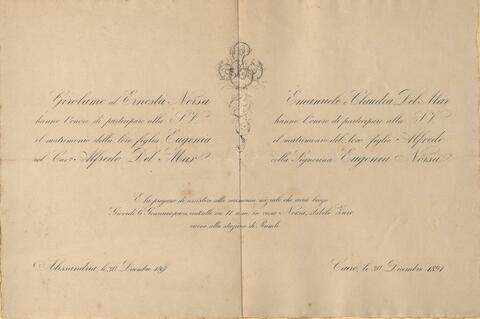 Girolamo ed Ernesta Norsa
hanno l'onore di partecipare alla S.V.
il matrimonio della loro figlia Eugenia
col Cav. Alfredo Del Mar
Emanuele e Claudia Del Mar
hanno l'onore di partecipare alla S.V.
il matrimonio del loro figlio Alfredo
colla Signorina Eugenia Norsa
E la pregano di assistere alla cerimonia nuziale che avrà luogo
Giovedì 6 Gennaio alle ore 11 ant. in casa Norsa, stabile
vicino alla stazione di Ramleh
Alessandria, le 30 Dicembre
Cairo, le 30 Dicembre 1897